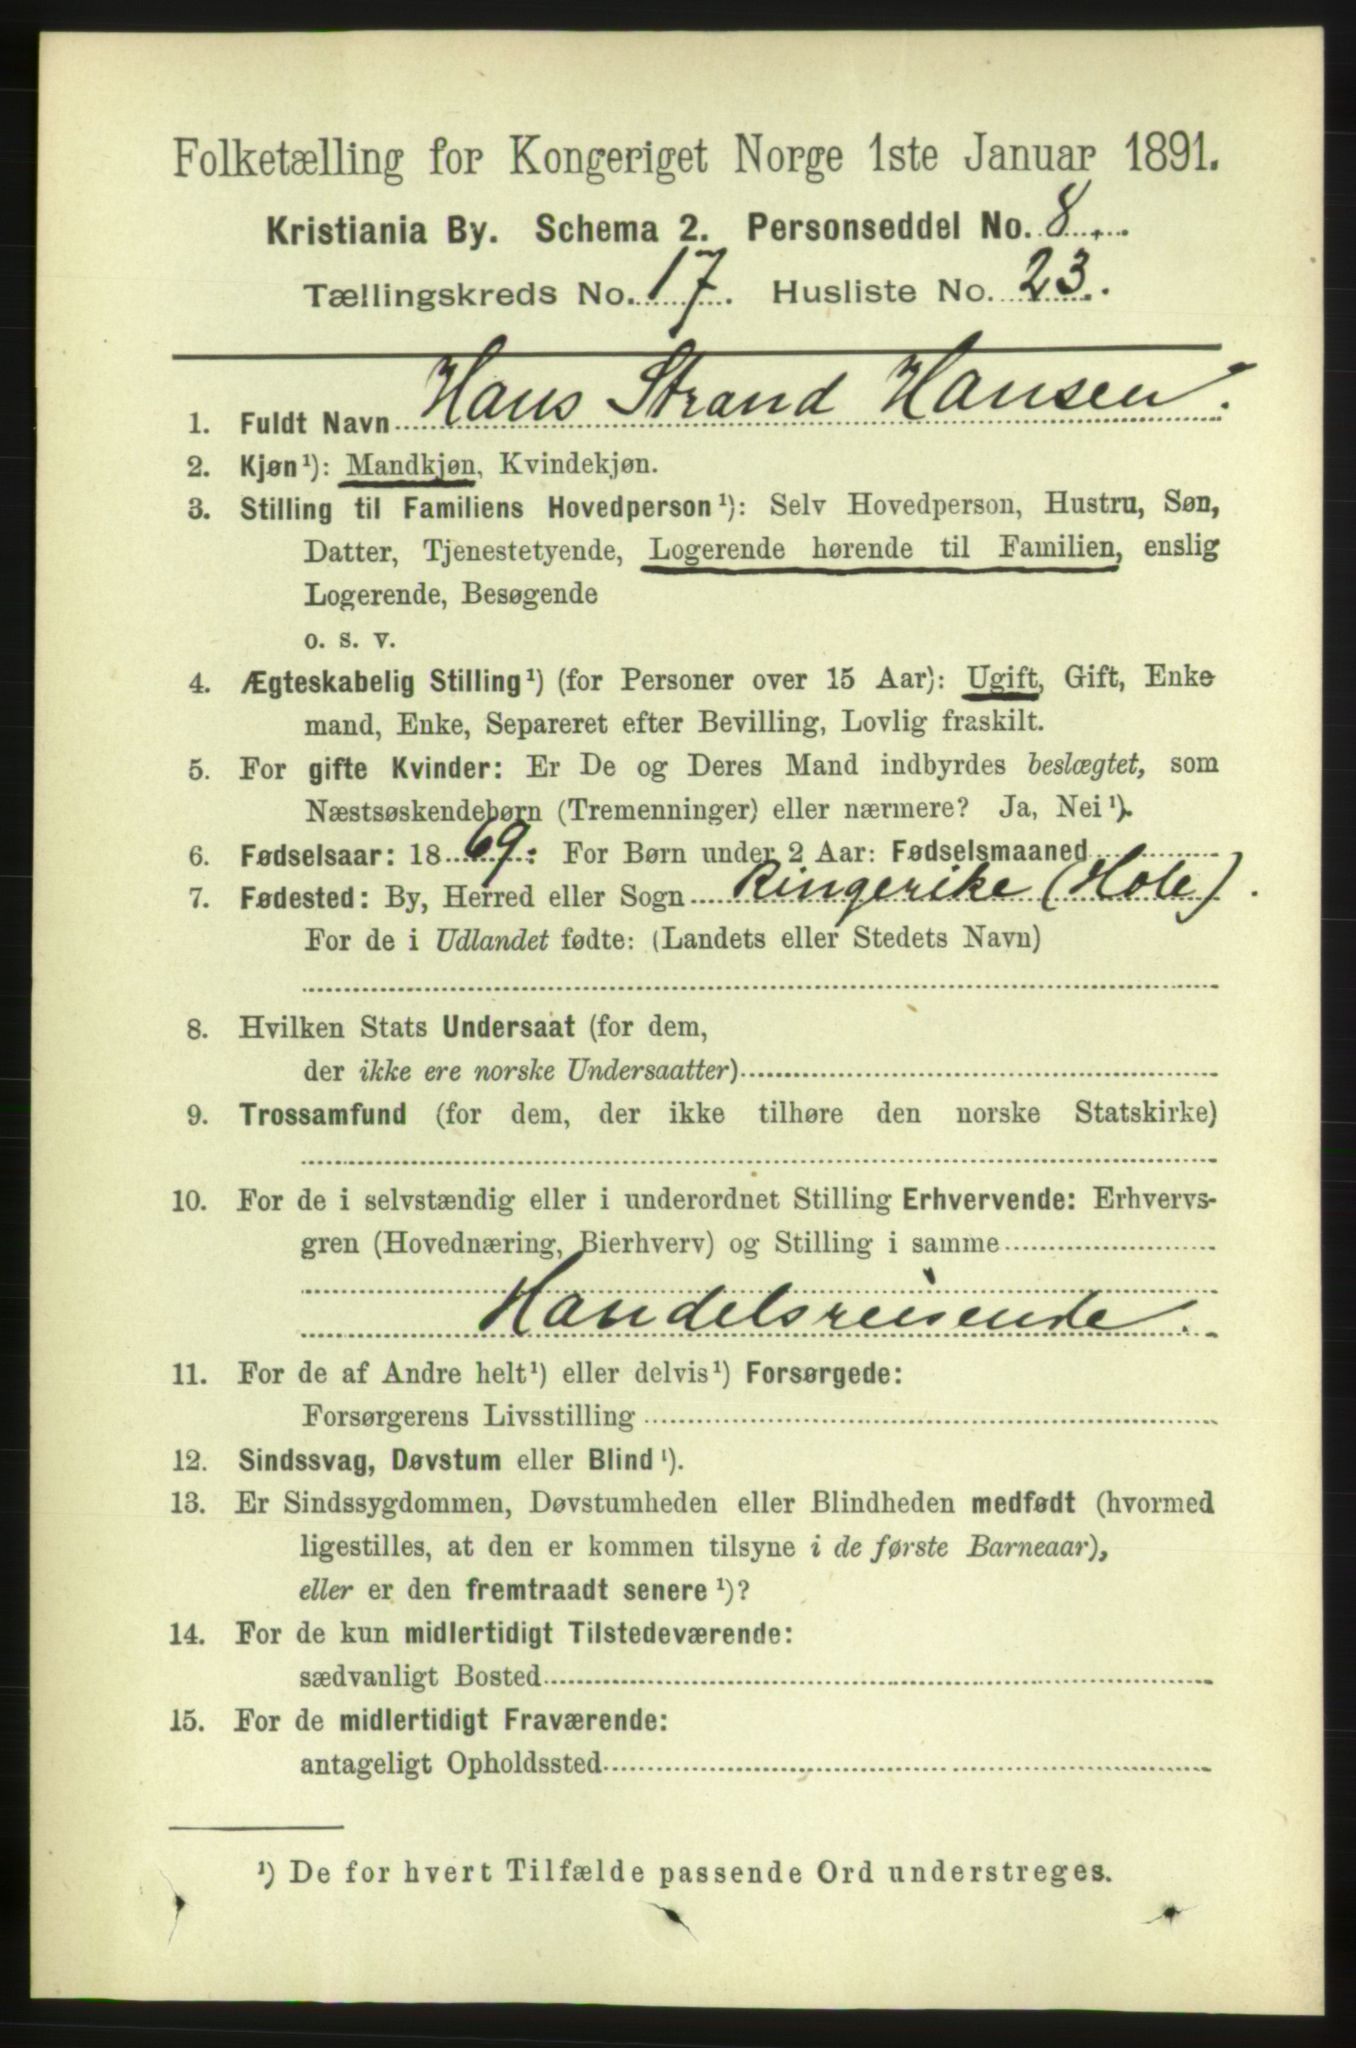 Folketælling for Kongeriget Norge 1ste Januar 1891.
Kristiania By. Schema 2. Personseddel No. 8
Tællingskreds No. 17. Husliste No. 23.
1. Fuldt Navn Hans Strand Hansen.
2. Kjøn¹): Mandkjøn, Kvindekjøn.
3. Stilling til Familiens Hovedperson¹): Selv Hovedperson, Hustru, Søn,
Datter, Tjenestetyende, Logerende hørende til Familien, enslig
Logerende, Besøgende
o. s. v.
4. Ægteskabelig Stilling¹) (for Personer over 15 Aar): Ugift, Gift, Enke-
mand, Enke, Separeret efter Bevilling, Lovlig fraskilt.
5. For gifte Kvinder: Er De og Deres Mand indbyrdes beslægtet, som
Næstsøskendebørn (Tremenninger) eller nærmere? Ja, Nei¹).
6. Fødselsaar: 1869. For Børn under 2 Aar: Fødselsmaaned
7. Fødested: By, Herred eller Sogn Ringerike (Hole).
For de i Udlandet fødte: (Landets eller Stedets Navn)
8. Hvilken Stats Undersaat (for dem,
der ikke ere norske Undersaatter)
9. Trossamfund (for dem, der ikke tilhøre den norske Statskirke)
10. For de i selvstændig eller i underordnet Stilling Erhvervende: Erhvervs-
gren (Hovednæring, Bierhverv) og Stilling i samme
Handelsreisende.
11. For de af Andre helt¹) eller delvis¹) Forsørgede:
Forsørgerens Livsstilling
12. Sindssvag, Døvstum eller Blind¹).
13. Er Sindssygdommen, Døvstumheden eller Blindheden medfødt (hvormed
ligestilles, at den er kommen tilsyne i de første Barneaar),
eller er den fremtraadt senere¹)?
14. For de kun midlertidigt Tilstedeværende:
sædvanligt Bosted
15. For de midlertidigt Fraværende:
antageligt Opholdssted
¹) De for hvert Tilfælde passende Ord understreges.